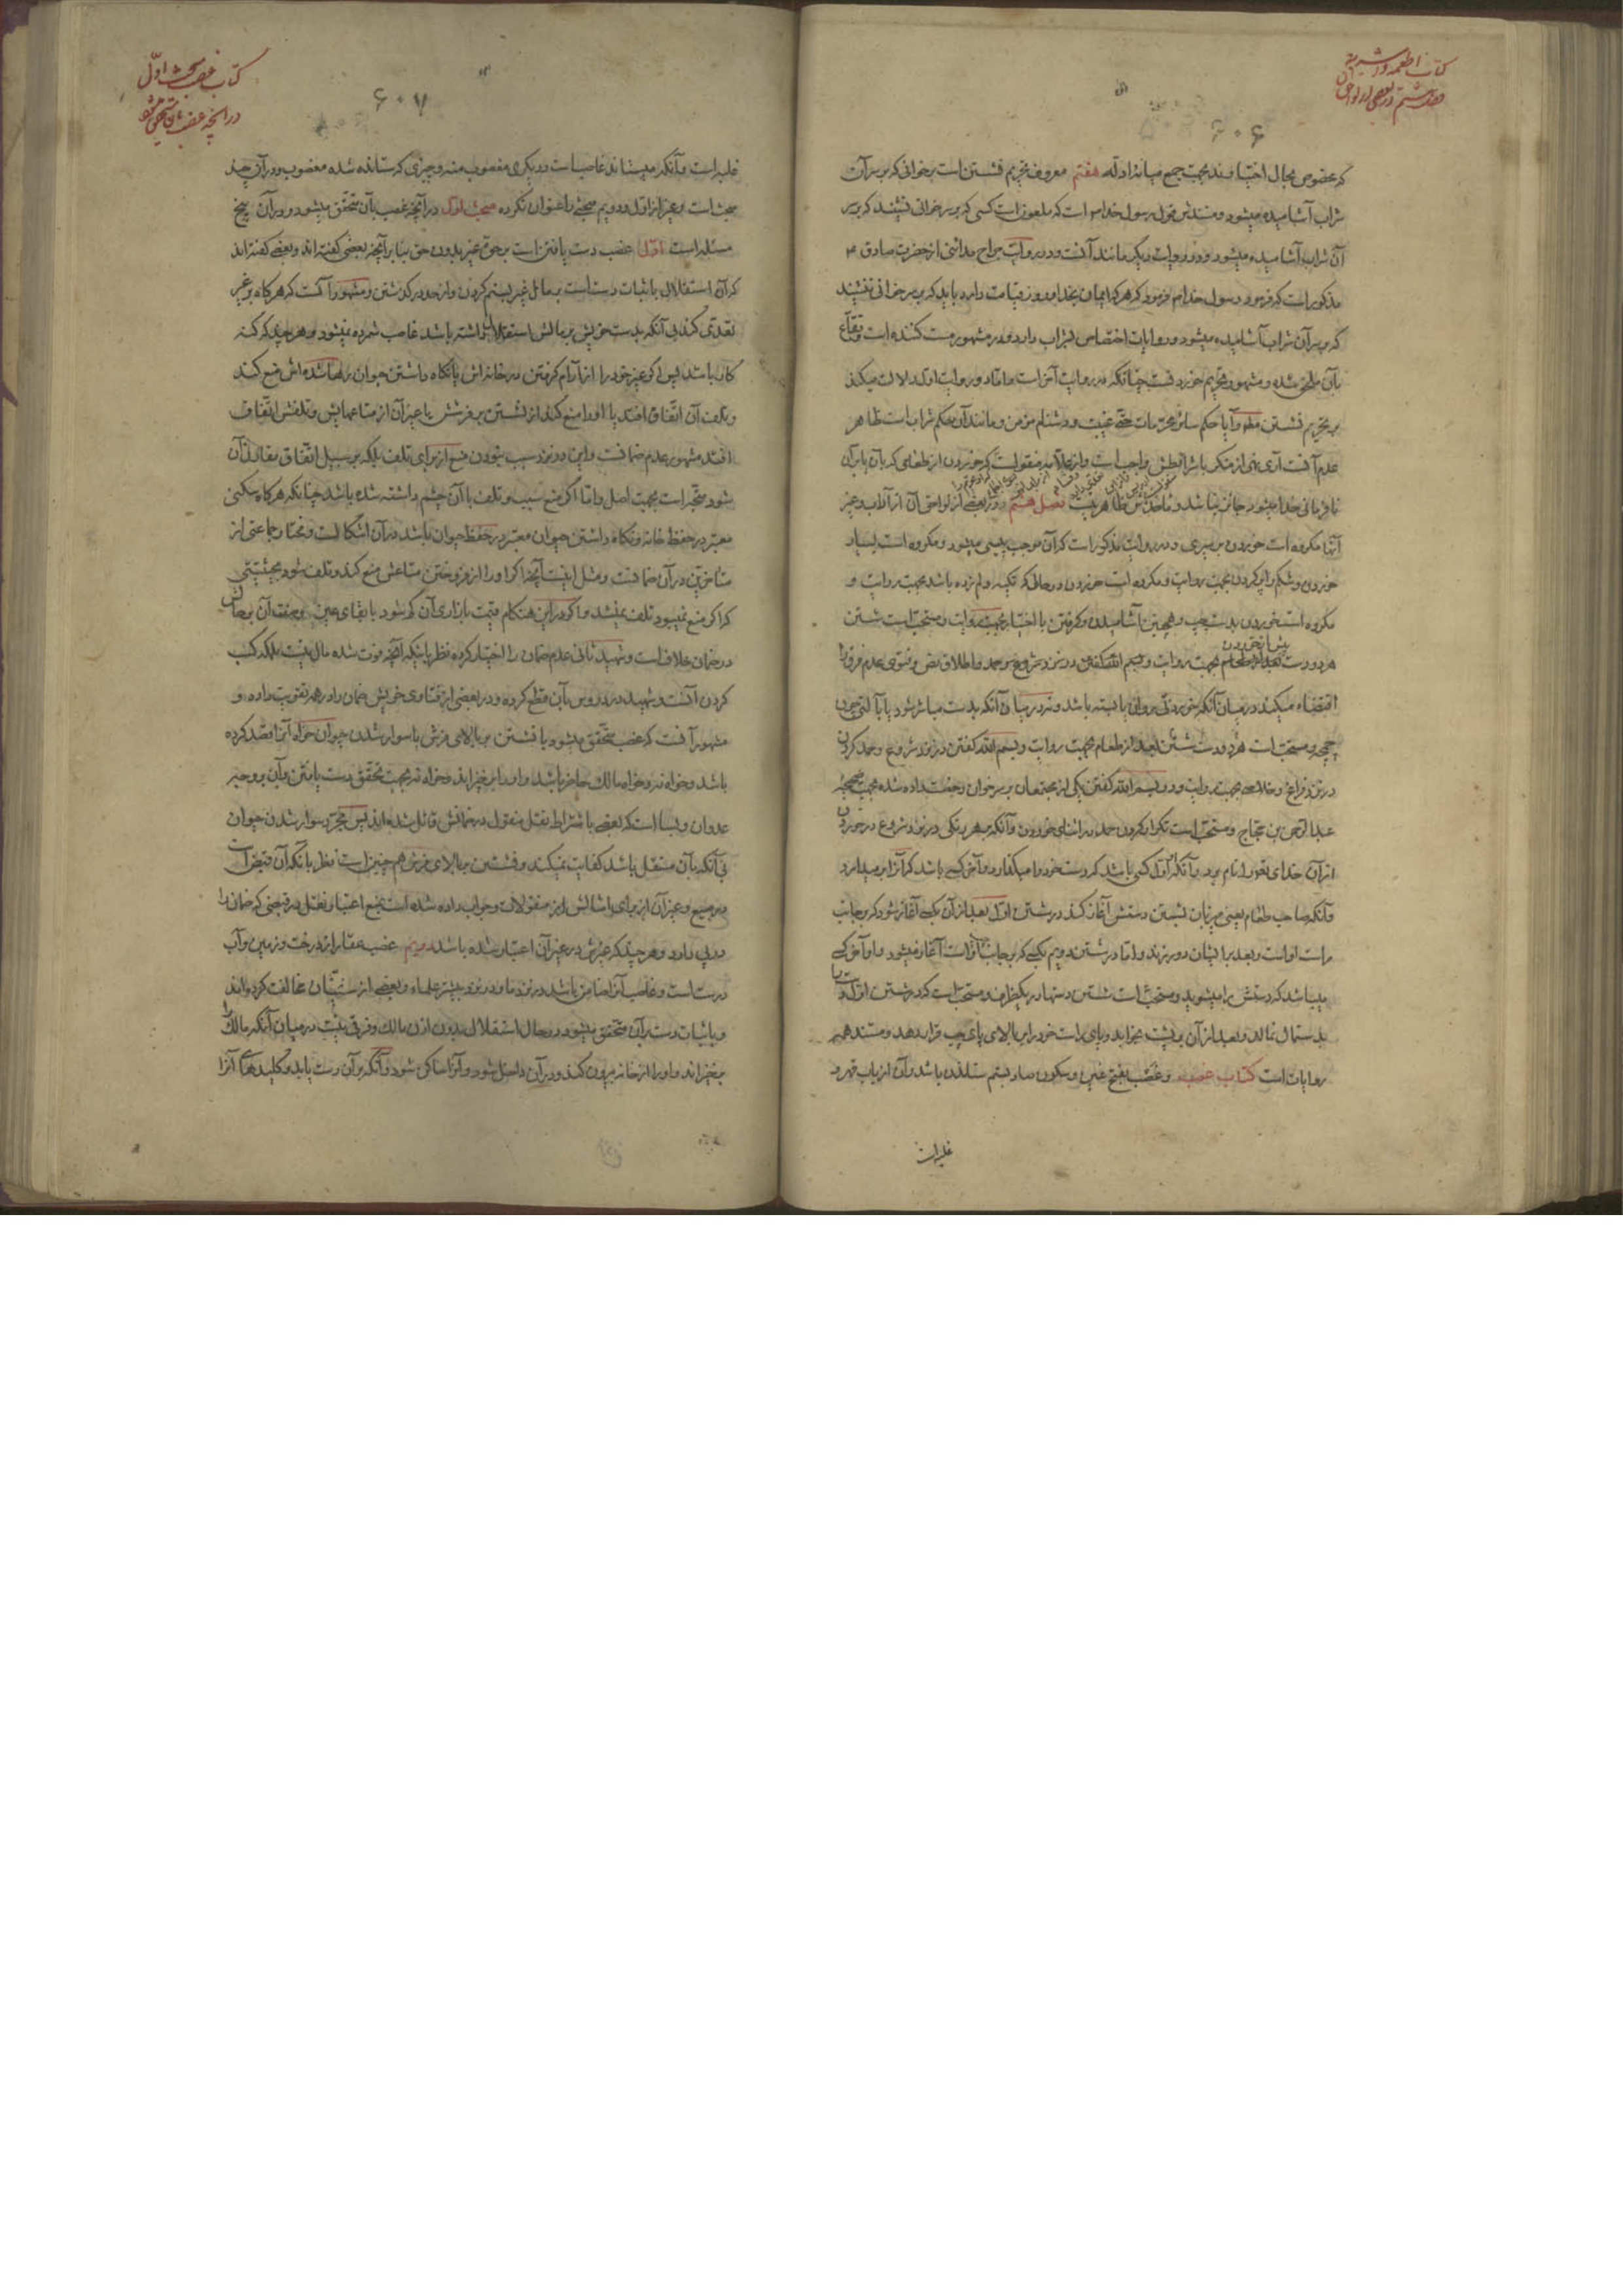 کتاب اطعمه و اشربه
فصل هشتم در بعضی از لواحق آن
۶۰۶
که بخصوص بحال اختیارند بجهت جمع میانهٔ ادله هفتم معروف تحریم نشستن است بر خوانی که بر سر آن
شراب آشامیده میشود و مستندش قول رسول خدا است که ملعون است کسی که بر سر خوانی نشیند که بر سر
آن شراب آشامیده میشود و در روایت دیگر مانند آنست و در روایت جراح مداینی از حضرت صادق ع
مذکور است که فرمود رسول خدا فرمود که هر که ایمان بخدا و روز قیامت دارد باید که بر سر خوانی ننشیند
که بر سر آن شراب آشامیده میشود و روایات اختصاص بشراب دارد و در مشهور مست کننده است و فقاع
بآن ملحق شده و مشهور تحریم خوردنست چنانکه در روایت آخر است و اما دو روایت اول دلالت میکند
بر تحریم نشستن مطلقا و آیا حکم سایر محرمات مثل غیبت و دشنام مؤمن و مانند آن بحکم شراب است ظاهر
عدم آنست آری نهی از منکر با شرایطش واجب است و از علامه منقولست که خوردن از طعامی که بآن یا بر آن
نافرمانی خدا میشود جائز نباشد و مأخذش ظاهر نیست فصل هشتم در بعضی از لواحق آن از آداب و غیر
آنها مکروه است خوردن بر سیری و در روایت مذکور است که آن موجب پیسی میشود و مکروه است بسیار
خوردن و شکم را پر کردن بجهت روایت و مکروه است خوردن در حالی که تکیه و لم زده باشد بجهت روایت و
مکروه است خوردن بدست چپ و همچنین آشامیدن و گرفتن با اختیار بجهت روایت و مستحب است شستن
هر دو دست پیش از خوردن طعام بجهت روایت و بسم الله گفتن در نزد شروع و حمد و اطلاق نص و فتوی عدم فرق را
اقتضاء میکند در میان آنکه خوردنی روان یا بسته باشد و نه در میان آنکه بدست مباشر شود یا بآلتی چون
چمچه و مستحب است هر دو دست شستن بعد از طعام بجهت روایت و بسم الله گفتن در نزد شروع و حمد کردن
در نزد فراغ و خلال بجهت روایت و در بسم الله گفتن یکی از مجتمعان بر سر خوان رخصت داده شده بجهت صحیحهٔ
عبد الرحمن بن حجاج و مستحب است تکرار کردن حمد در اثنای خوردن و آنکه بر هر رنگی در نزد شروع در خوردن
از آن خدای تعالی را نام برد و آنکه اول کسی باشد که دست خود را میگذارد و آخر کسی باشد که آنرا بر میدارد
و آنکه صاحب طعام یعنی میزبان بشستن دستش آغاز کند در شستن اول بعد از آن بکسی آغاز شود که بر جانب
راست اوست و بعد برایشان دور زند و اما در شستن دویم بکسی که بر جانب چپ اوست آغاز میشود و او آخر کسی
میباشد که دستش را میشوید و مستحب است شستن دستها در یکظرف و مستحب است که در شستن اول دست را
بدستمال نمالد و بعد از آن بر پشت بخوابد و پای راست خود را بر بالای پای چپ قرار دهد و مستند همه
روایات است کتاب غصب و غصب بفتح غین و سکون صاد بستم ستاندن باشد و آن از باب قهر و
غلبه است
کتاب غصب مبحث اول
در آنچه غصب بآن متحقق میشود
۶۰۷
غلبه است و آنکه میستاند غاصبست و دیگری مغصوب منه و چیزی که ستانده شده مغصوب و در آن چند
مبحث است و غیر از اول و دویم مبحثی را عنوان نکرده مبحث اول در آنچه غصب بآن متحقق میشود و در آن پنج
مسئله است اول غصب دست یافتن است بر حق غیر بدون حق بنا بر آنچه بعضی گفته اند و بعضی گفته اند
که آن استقلال باثبات دست است بر مال غیر بستم کردن و از حد در گذشتن و مشهور آنست که هر گاه بر غیر
تعدی کند بی آنکه بدست خویش بر مالش استقلال داشته باشد غاصب شمرده نمیشود و هر چند که گنه
کار باشد پس اگر غیر خود را از آرام گرفتن در خانه اش یا نگاه داشتن حیوان رها شده اش منع کند
و تلف آن اتفاق افتد یا او را منع کند از نشستن بر فرشش یا غیر آن از متاعهایش و تلفش اتفاق
افتد مشهور عدم ضمانست و این در نزد سبب نبودن منع از برای تلف بلکه بر سبیل اتفاق مقارن آن
شود متجه است بجهت اصل و اما اگر منع سبب و تلف با آن چشم داشته شده باشد چنانکه هر گاه سکنی
معتبر در حفظ خانه و نگاه داشتن حیوان معتبر در حفظ حیوان باشد در آن اشکالست و مختار جماعتی از
متأخرین در آن ضمانست و مثل اینست آنچه اگر او را از فروختن متاعش منع کند و تلف شود بحیثیتی
که اگر منع نمیبود تلف نمیشد و اگر در این هنگام قیمت بازاری آن کم شود با بقای عین و صفت آن بر حالش
در ضمان خلاف است و شهید ثانی عدم ضمان را اختیار کرده نظر باینکه آنچه فوت شده مال نیست بلکه کسب
کردن آنست و شهید در دروس بآن قطع کرده و در بعضی از فتاوی خویش ضمان را در همه تقویت داده و
مشهور آنست که غصب متحقق میشود با نشستن بر بالای فرش یا سوار شدن حیوان خواه آنرا قصد کرده
باشد و خواه نه و خواه مالک حاضر باشد و او را بر خیزاند و خواه نه بجهت تحقق دست یافتن بر آن بر وجه
عدوان و بسا است که بعضی باشتراط نقل منقول در ضمانش قائل شده اند پس مجرد سوار شدن حیوان
بی آنکه بآن منتقل باشد کفایت نمیکند و نشستن بر بالای فرش هم چنین است نظر بآنکه آن قبض است
در مبیع و غیر آن از برای امثالش از منقولات و جواب داده شده است بمنع اعتبار نقل در قبضی که ضمان را
در پی دارد و هر چند که غرض در غیر آن اعتبار شده باشد دویم غصب عقار از درخت و زمین و آب
درست است و غاصب آنرا ضامن باشد در نزد ما و در نزد بیشتر علماء و بعضی از سنیان مخالفت کرده اند
و باثبات دست بر آن متحقق میشود در حال استقلال بدون اذن مالک و فرقی نیست در میان آنکه مالک را
برخیزاند و او را از خانه بیرون کند و در آن داخل شود و آنرا ساکن شود و آنکه بر آن دست یابد و کلیدهای آنرا